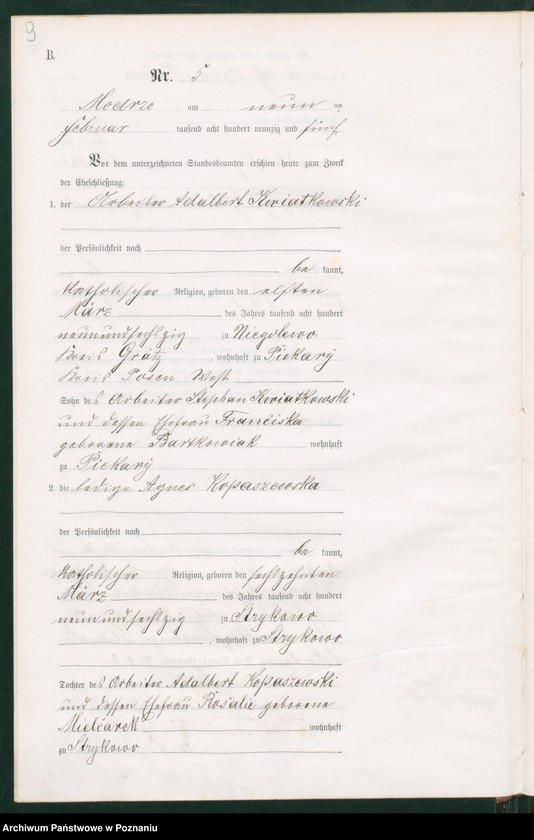 9
B.
Nr. 5
Modrze am neun ten
Februar tausend acht hundert neunzig und fünf
Vor dem unterzeichneten Standesbeamten erschien heute zum Zweck
der Eheschließung:
1. der Arbeiter Adalbert Kwiatkowski
der Persönlichkeit nach
be kannt,
katholischer Religion, geboren den elften
März des Jahres tausend acht hundert
neunundsechszig zu Niegolewo
Kreis Grätz, wohnhaft zu Piekary
Kreis Posen West
Sohn des Arbeiter Stephan Kwiatkowski
und dessen Ehefrau Franciska
geborene Bartkowiak wohnhaft
zu Piekary
2. die ledige Agnes Kopaszewska
der Persönlichkeit nach
be kannt,
katholischer Religion, geboren den sechszehnten
März des Jahres tausend acht hundert
neunundsechszig zu Strykowo
, wohnhaft zu Strykowo
Tochter des Arbeiter Adalbert Kopaszewski
und dessen Ehefrau Rosalie geborene
Mielcarek wohnhaft
zu Strykowo
Archiwum Państwowe w Poznaniu